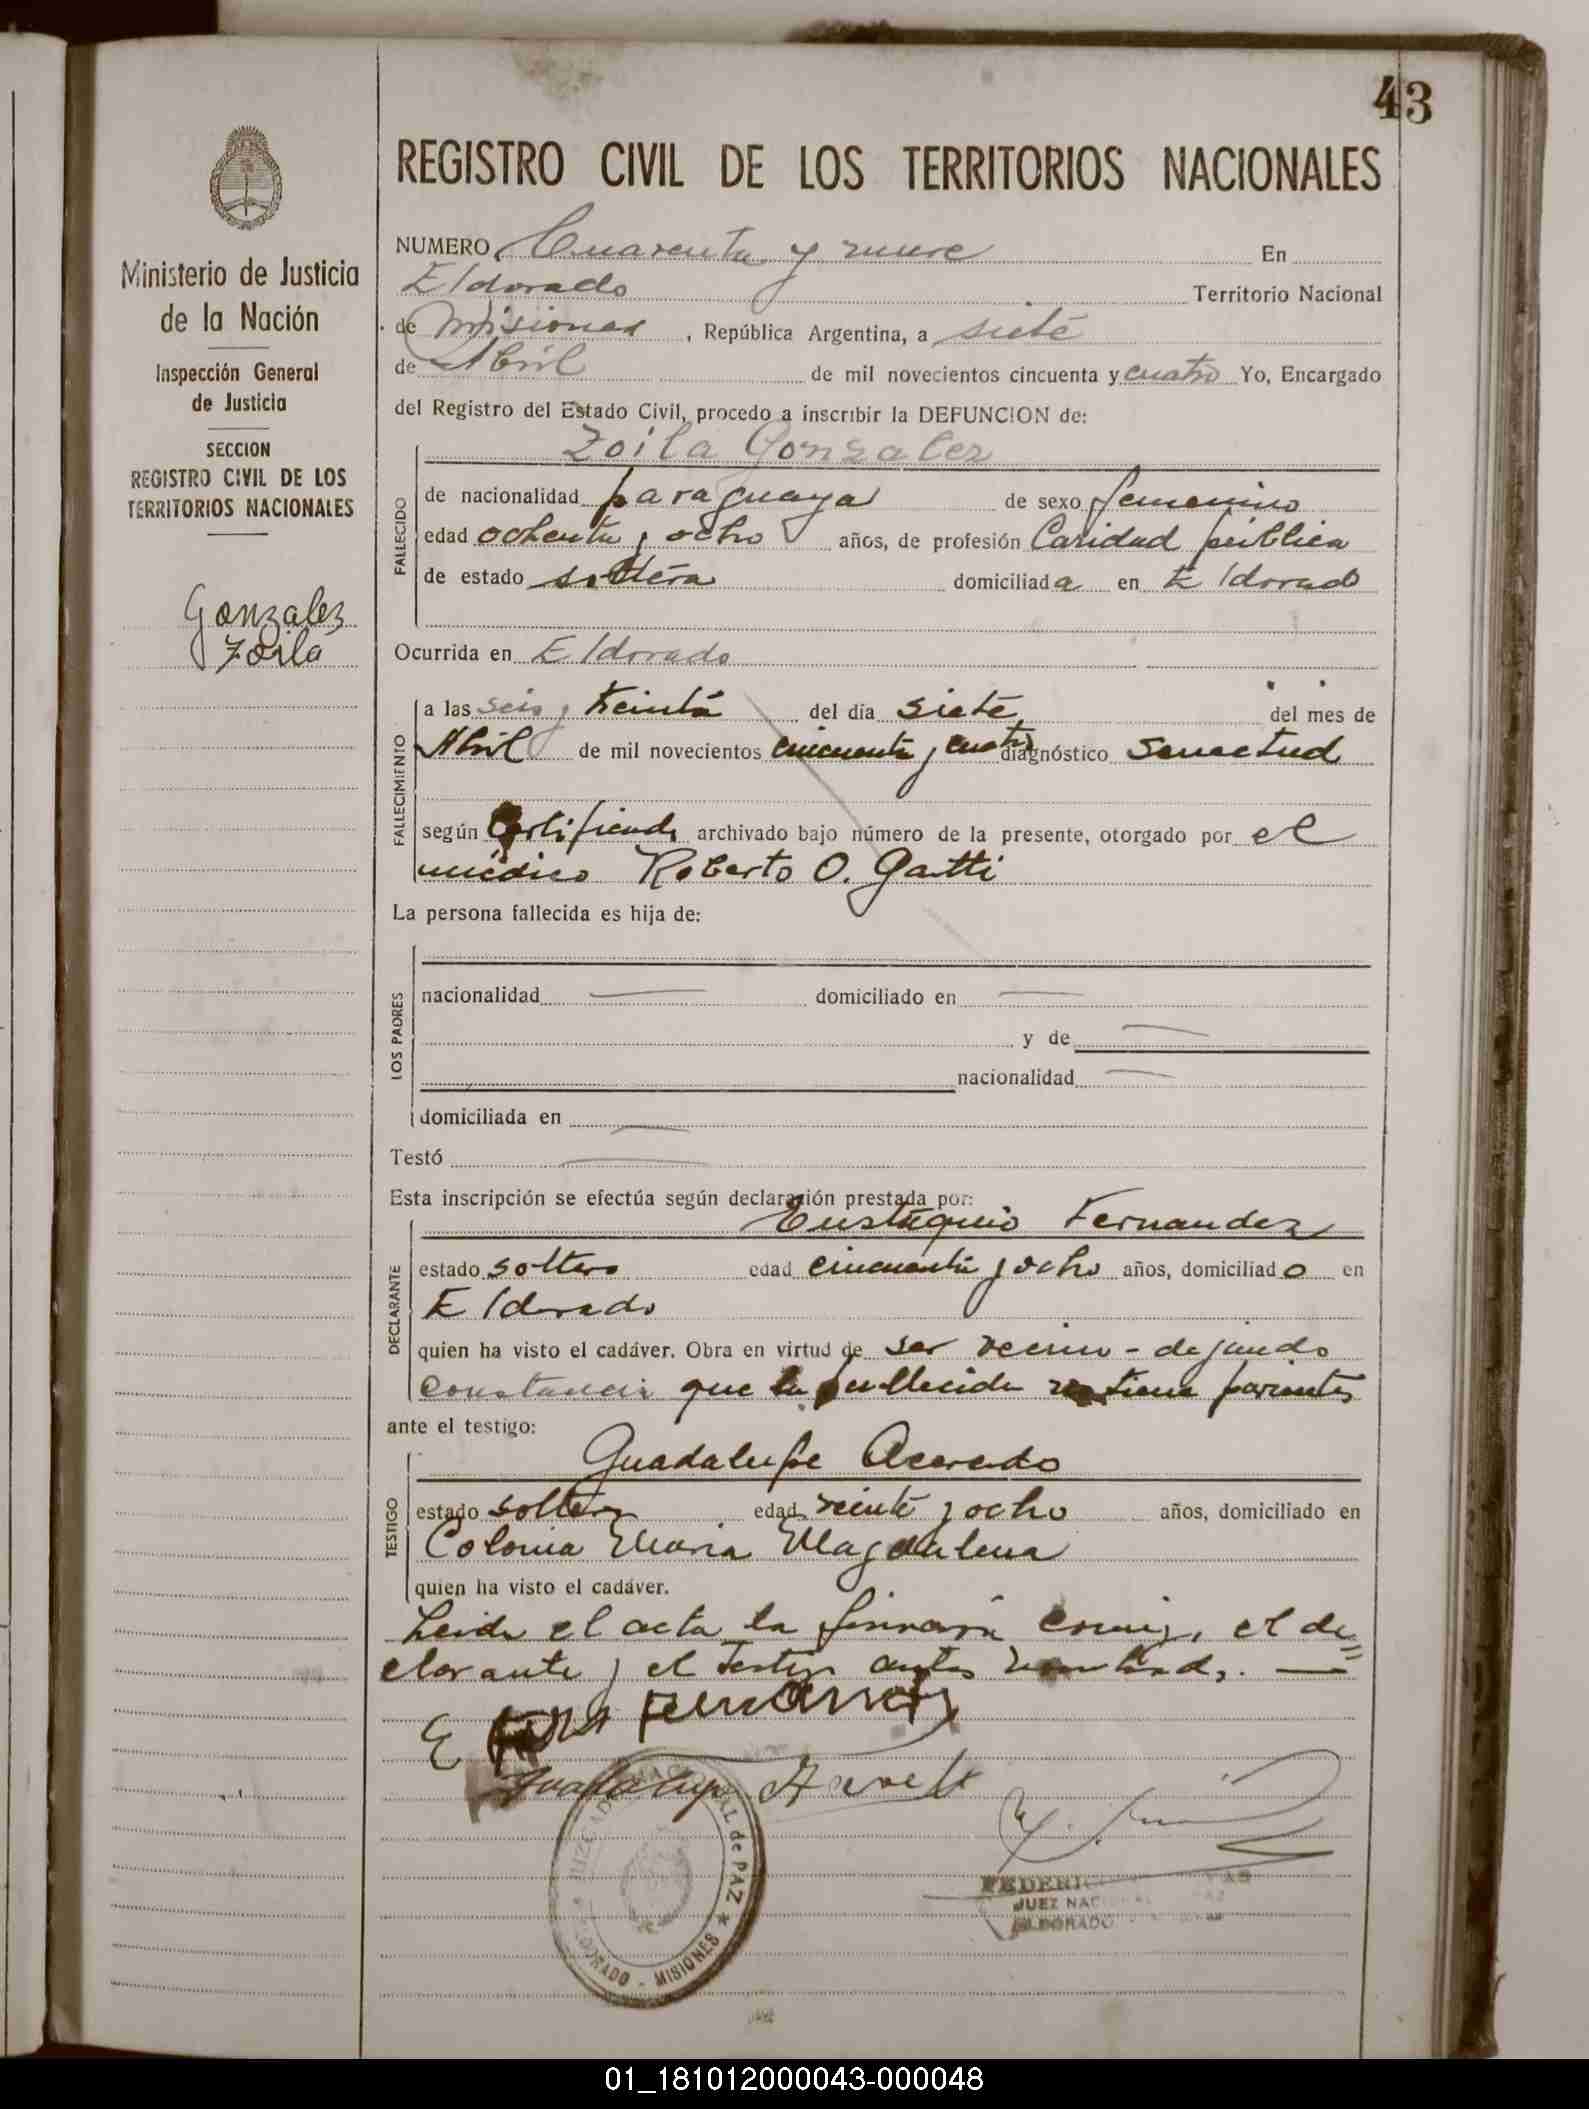 43
REGISTRO CIVIL DE LOS TERRITORIOS NACIONALES
Ministerio de Justicia
de la Nación
Inspección General
de Justicia
SECCION
REGISTRO CIVIL DE LOS
TERRITORIOS NACIONALES
Gonzalez
Zoila
NUMERO Cuarenta y nueve En
Eldorado Territorio Nacional
de Misiones, República Argentina, a siete
de Abril de mil novecientos cincuenta y cuatro Yo, Encargado
del Registro del Estado Civil, procedo a inscribir la DEFUNCION de:
Zoila Gonzalez
FALLECIDO
de nacionalidad paraguaya de sexo femenino
edad ochenta y ocho años, de profesión Caridad pública
de estado soltera domiciliada en Eldorado
Ocurrida en Eldorado
FALLECIMIENTO
a las seis y treinta del día siete del mes de
Abril de mil novecientos cincuenta y cuatro diagnóstico senectud
según Certificado archivado bajo número de la presente, otorgado por el
médico Roberto O. Gatti
La persona fallecida es hija de:
LOS PADRES
nacionalidad — domiciliado en —
y de —
nacionalidad —
domiciliada en —
Testó —
Esta inscripción se efectúa según declaración prestada por:
Eustaquio Fernandez
DECLARANTE
estado soltero edad cincuenta y ocho años, domiciliado en
Eldorado
quien ha visto el cadáver. Obra en virtud de ser vecino - dejando
constancia que la fallecida no tiene parientes
ante el testigo:
Guadalupe Acevedo
TESTIGO
estado soltero edad veinte y ocho años, domiciliado en
Colonia Maria Magdalena
quien ha visto el cadáver.
Leida el acta la firmarón conmigo, el de=
clarante y el testigo antes nombrado. —
E Fernandez
Guadalupe
JUZGADO NACIONAL de PAZ ★
ELDORADO - MISIONES ★
JUEZ NAC
ELDORADO
01_181012000043-000048